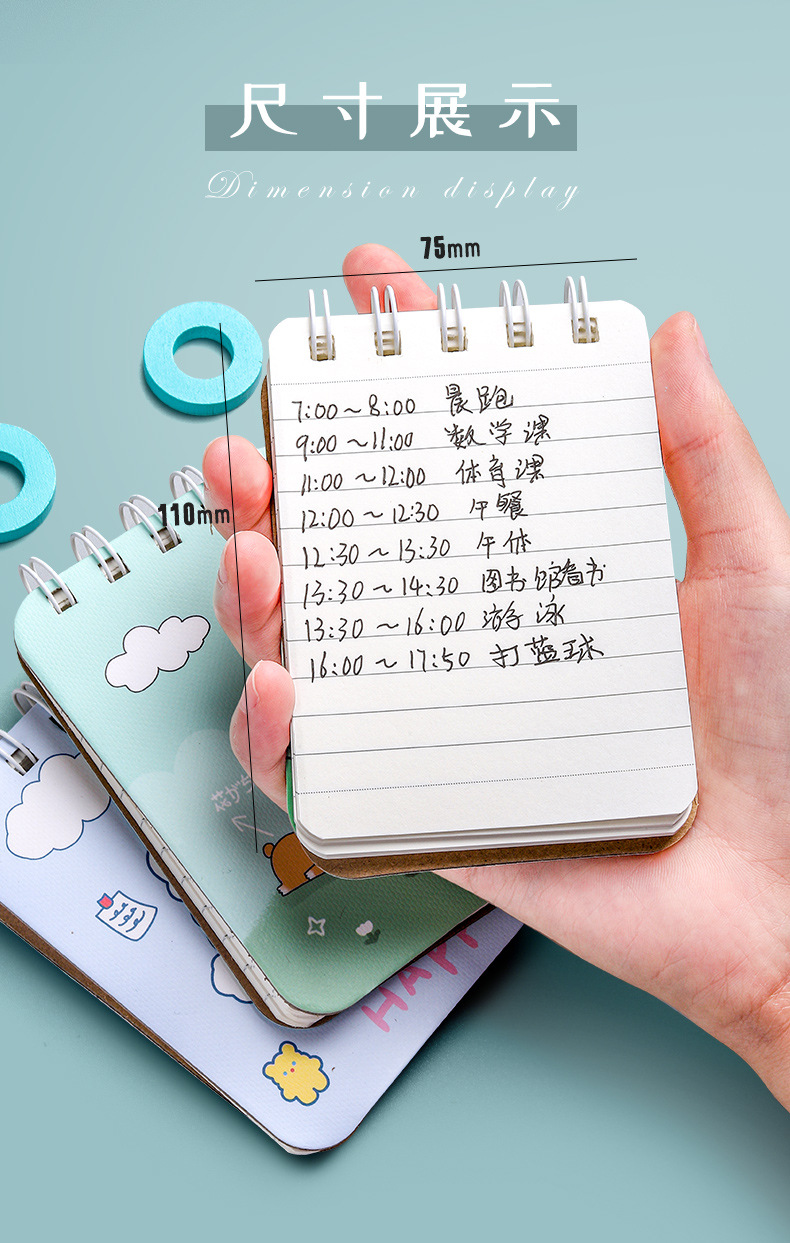 尺寸展示
Dimension display
75mm
110mm
7:00~8:00 晨跑
9:00~11:00 数学课
11:00~12:00 体育课
12:00~12:30 午餐
12:30~13:30 午休
13:30~14:30 图书馆看书
13:30~16:00 游泳
16:00~17:50 打蓝球
HAPP